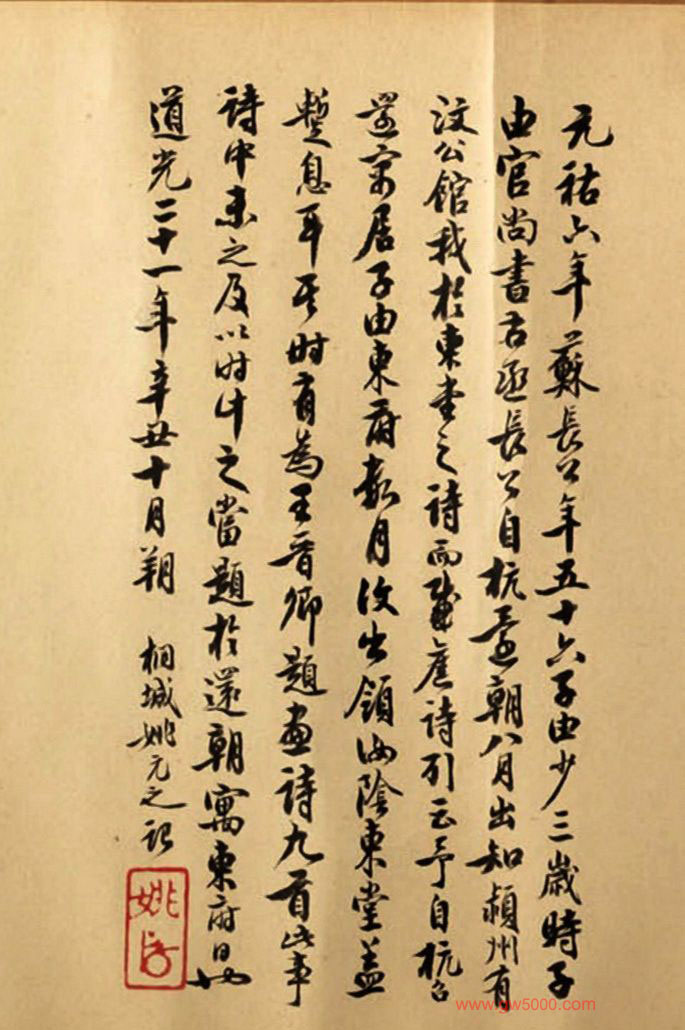 元祐六年蘇長公年五十六子由少三歲時子
由官尚書右丞長公自杭還朝八月出知潁州有
汶公館我於東堂之詩而感舊詩引云予自杭召
還寓居子由東府數月復出領汝陰東堂蓋
暫息耳其時有為王晉卿題畫詩九首此事
詩中未之及以時計之當題於還朝寓東府日也
道光二十一年辛丑十月朔 桐城姚元之記
姚
www.gw5000.com